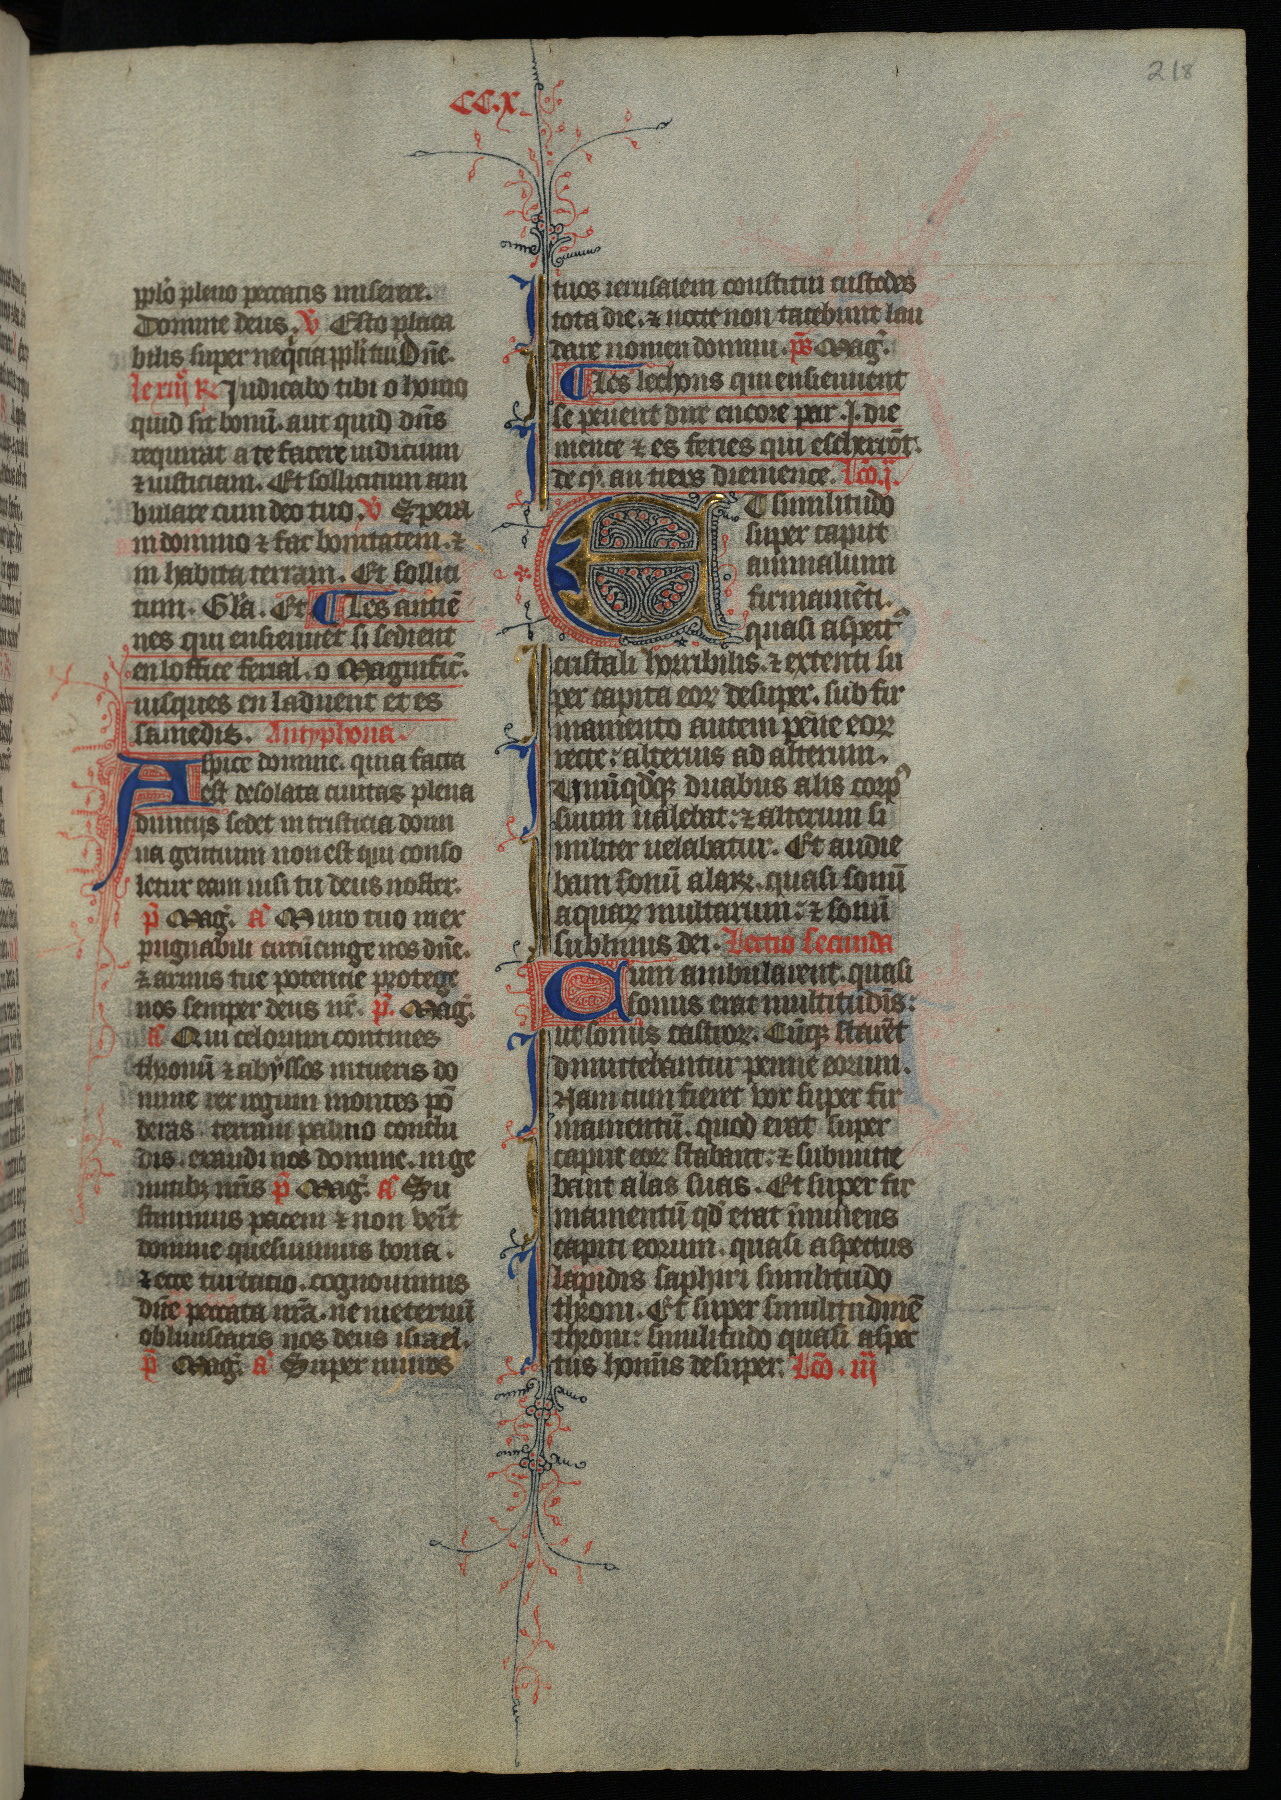 218
CC.X.
pplo pleno peccatis miserere.
Domine deus. V Esto placa
bilis super neqicia ppli tui Dñe.
le xiiij R Judicabo tibi o homo
quid sit bonũ. aut quid dñs
requirat a te facere iudicium
⁊ iusticiam. Et sollicitum am
bulare cum deo tuo. V Spera
in domino ⁊ fac bonitatem. ⁊
in habita terram. Et sollici
tum. Gła. Et Les antiē
nes qui ensieuuēt si sedient
en loffice ferial. o Magnifict̄.
iusques en laduent et es
samedis. Antyphona.
Aspice domine. quia facta
est desolata ciuitas plena
diuicijs sedet in tristicia domi
na gentium non est qui conso
letur eam nisi tu deus noster.
p̄ Mag. a Muro tuo inex
pugnabili circūcinge nos dñe.
⁊ armis tue potentie protege
nos semper deus nr̄. p̄. Mag.
a Qui celorum contines
thronū ⁊ abyssos intueris do
mine rex regum montes pō
deras. terram palmo conclu
dis. exaudi nos domine. in ge
mitibꝫ nr̄is p̄ Mag. a Su
stinuimus pacem ⁊ non venit
domine quesiuimus bona.
⁊ ecce turbatio. cognouimus
dñe peccata nr̄a. ne in eternū
obliuiscaris nos deus israel.
p̄ Mag. a Super muros
tuos ierusalem constitui custodes
tota die. ⁊ nocte non tacebunt lau
dare nomen domini. ps Mag.
Les lechons qui ensieuuent
se peuent dire encore par .j. die
mence ⁊ es feries qui escherrōt.
de cy. au tiers diemence. Lc̄o .j.
Et similitudo
super caput
animalium
firmamēti.
quasi aspectꝰ
cristali horribilis. ⁊ extenti su
per capita eoꝝ desuper. sub fir
mamento autem pene eoꝝ
recte: alterius ad alterum.
Unūqdqꝫ duabus alis corpꝰ
suum ualebat: ⁊ alterum si
militer uelabatur. Et audie
bam sonū alaꝝ. quasi sonū
aquaꝝ multarum: ⁊ sonū
sublimis dei. Lectio secunda
Cum ambularent. quasi
sonus erat multitudinis:
ut sonus castroꝝ. Cūqꝫ starēt
dimittebantur penne eorum.
Nam cum fieret vox super fir
mamentū. quod erat super
caput eoꝝ stabant: ⁊ submitte
bant alas suas. Et super fir
mamentū qd erat ĩminens
capiti eorum. quasi aspectus
lapidis saphiri similitudo
throni. Et super similitudinē
throni: similitudo quasi aspec
tus hominis desuper. Lc̄o. iij